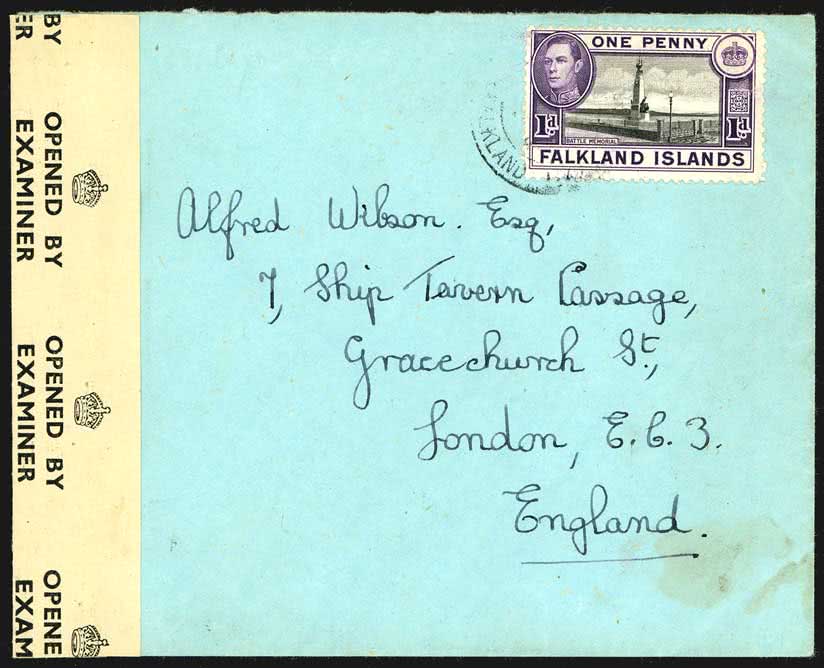 BY
ER
OPENED BY
EXAMINER
OPENED BY
EXAMINER
OPENE
EXAM
ONE PENNY
1d 1d
BATTLE MEMORIAL
FALKLAND ISLANDS
KLAND
Alfred Wilson. Esq,
7, Ship Tavern Passage,
Gracechurch St.,
London, E.C.3.
England.